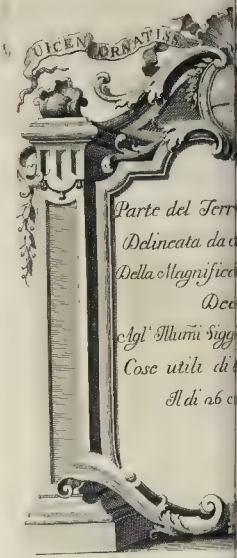 UICEN ORNATISS
Parte del Terr
Delineata da
Della Magnific
Ded
Agl' Illumi Sigg
Cose utili di
Il di 26